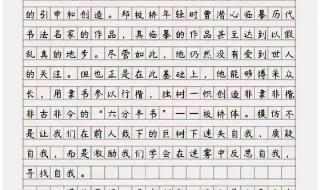 的引申和创造。郑板桥年轻时曾潜心临摹历代
书法名家的作品，其临摹的作品甚至达到以假
乱真的地步。尽管如此，他仍然没有受到世人
的关注。但也正是在此基础上，他能够博采众
长，用隶书参以行楷，独树一帜创造非隶非楷
非古非今的“六分半书”——板桥体。模仿不
是让我们在前人栽下的巨树下迷失自我、质疑
自我，而是激励我们学会在迷雾中反思自我、
寻找自我。